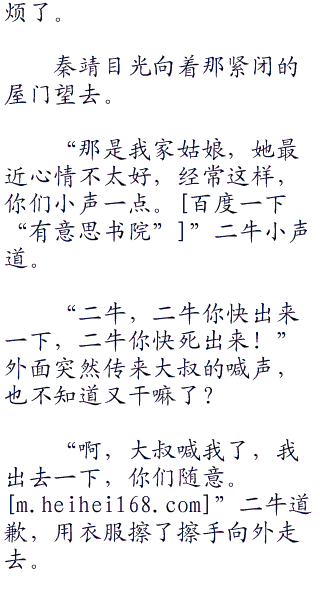 烦了。
秦靖目光向着那紧闭的
屋门望去。
“那是我家姑娘，她最
近心情不太好，经常这样，
你们小声一点。[百度一下
“有意思书院”]”二牛小声
道。
“二牛，二牛你快出来
一下，二牛你快死出来！”
外面突然传来大叔的喊声，
也不知道又干嘛了？
“啊，大叔喊我了，我
出去一下，你们随意。
[m.heihei168.com]”二牛道
歉，用衣服擦了擦手向外走
去。